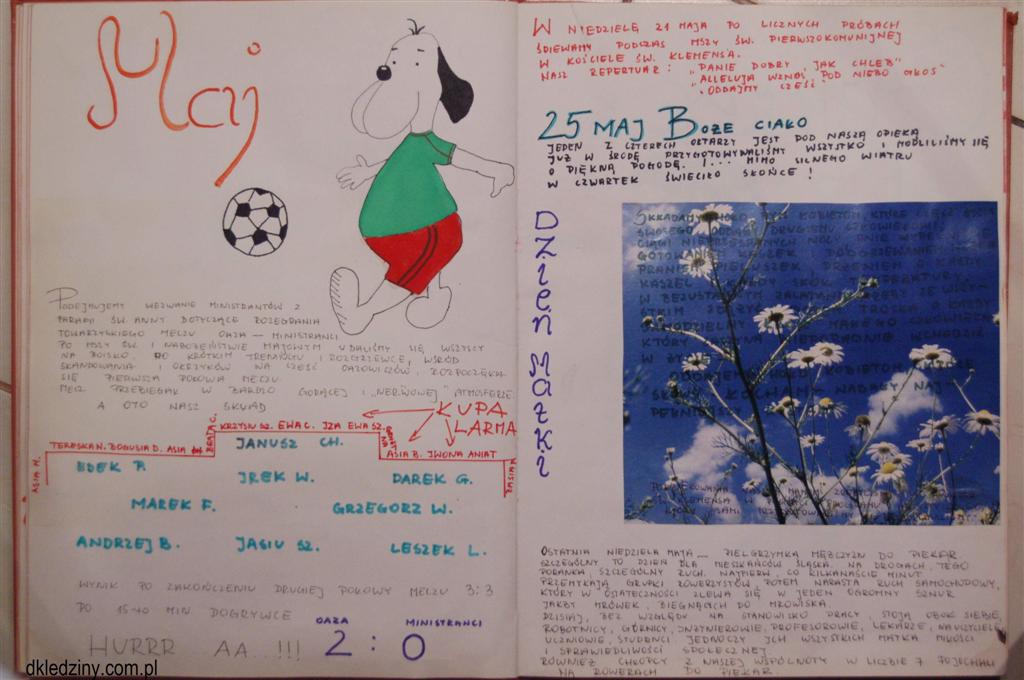 Maj
PODEJMUJEMY WEZWANIE MINISTRANTÓW Z
PARAFII ŚW. ANNY DOTYCZĄCE ROZEGRANIA
TOWARZYSKIEGO MECZU OAZA — MINISTRANCI
PO MSZY ŚW. I NABOŻEŃSTWIE MAJOWYM UDALIŚMY SIĘ WSZYSCY
NA BOISKO. PO KRÓTKIM TRENINGU I ROZGRZEWCE, WŚRÓD
SKANDOWANIA I OKRZYKÓW NA CZEŚĆ OAZOWICZÓW, ROZPOCZĘŁA
SIĘ PIERWSZA POŁOWA MECZU.
MECZ PRZEBIEGAŁ W BARDZO GORĄCEJ I „NERWOWEJ" ATMOSFERZE.
A OTO NASZ SKŁAD
KUPA
LARMA
KRZYSIU SZ. EWA C. IZA EWA SZ.
BEATA C.
TERESKA N. BOGUSIA D. ASIA
ASIA B. IWONA ANIAT
ASIA M.
JANUSZ CH.
EDEK P. IREK W. DAREK G.
MAREK F. GRZEGORZ W.
ANDRZEJ B. JASIU SZ. LESZEK L.
WYNIK PO ZAKOŃCZENIU DRUGIEJ POŁOWY MECZU 3:3
PO 15-40 MIN. DOGRYWCE
OAZA MINISTRANCI
HURRR AA...!!! 2:0
dkledziny.com.pl
W NIEDZIELĘ 21 MAJA PO LICZNYCH PRÓBACH
ŚPIEWAMY PODCZAS MSZY ŚW. PIERWSZOKOMUNIJNEJ
W KOŚCIELE ŚW. KLEMENSA.
NASZ REPERTUAR: "PANIE DOBRY JAK CHLEB"
"ALLELUJA WZNOŚ POD NIEBO GŁOS"
"ODDAJMY CZEŚĆ"
25 MAJ BOŻE CIAŁO
JEDEN Z CZTERECH OŁTARZY JEST POD NASZĄ OPIEKĄ
JUŻ W ŚRODĘ PRZYGOTOWYWALIŚMY WSZYSTKO I MODLILIŚMY SIĘ
O PIĘKNĄ POGODĘ. I... MIMO SILNEGO WIATRU
W CZWARTEK ŚWIECIŁO SŁOŃCE!
DZIEŃ MATKI
SKŁADAMY HOŁD TYM KOBIETOM, KTÓRE CZĘŚĆ ŻYCIA
SWOJEGO ODDAŁY DRUGIEMU CZŁOWIEKOWI.
CIĄGI NIEPRZESPANYCH NOCY, DNIE WYPEŁNIONE
GOTOWANIEM KASZEK, PODGRZEWANIEM
PRANIEM PIELUSZEK, DRŻENIEM O KAŻDY
KASZEL, KAŻDY SKOK TEMPERATURY.
W BEZUSTANNYM ZALATANIU
TROSKA
MAŁEGO CZŁOWIECZKA,
KTÓRY ZACZYNA NIEPORADNIE WCHODZIĆ
W ŻYCIE.
ODDAJEMY HOŁD KOBIETOM
SŁOWU „KOCHAM" NADAŁY NAJ-
PEŁNIEJSZY
OSTATNIA NIEDZIELA MAJA — PIELGRZYMKA MĘŻCZYZN DO PIEKAR.
SZCZEGÓLNY TO DZIEŃ DLA MIESZKAŃCÓW ŚLĄSKA. NA DROGACH, TEGO
PORANKA, SZCZEGÓLNY RUCH. NAJPIERW, CO KILKANAŚCIE MINUT
PRZEMYKAJĄ GRUPKI ROWERZYSTÓW, POTEM NARASTA RUCH SAMOCHODOWY,
KTÓRY W OSTATECZNOŚCI ZLEWA SIĘ W JEDEN OGROMNY SZNUR
JAKBY MRÓWEK, BIEGNĄCYCH DO MROWISKA.
DZISIAJ, BEZ WZGLĘDU NA STANOWISKO PRACY, STOJĄ OBOK SIEBIE
ROBOTNICY, GÓRNICY, INŻYNIEROWIE, PROFESOROWIE, LEKARZE, NAUCZYCIELE
UCZNIOWIE, STUDENCI JEDNOCZY ICH WSZYSTKICH MATKA MIŁOŚCI
I SPRAWIEDLIWOŚCI SPOŁECZNEJ
RÓWNIEŻ CHŁOPCY Z NASZEJ WSPÓLNOTY W LICZBIE 7 POJECHALI
NA ROWERACH DO PIEKAR.